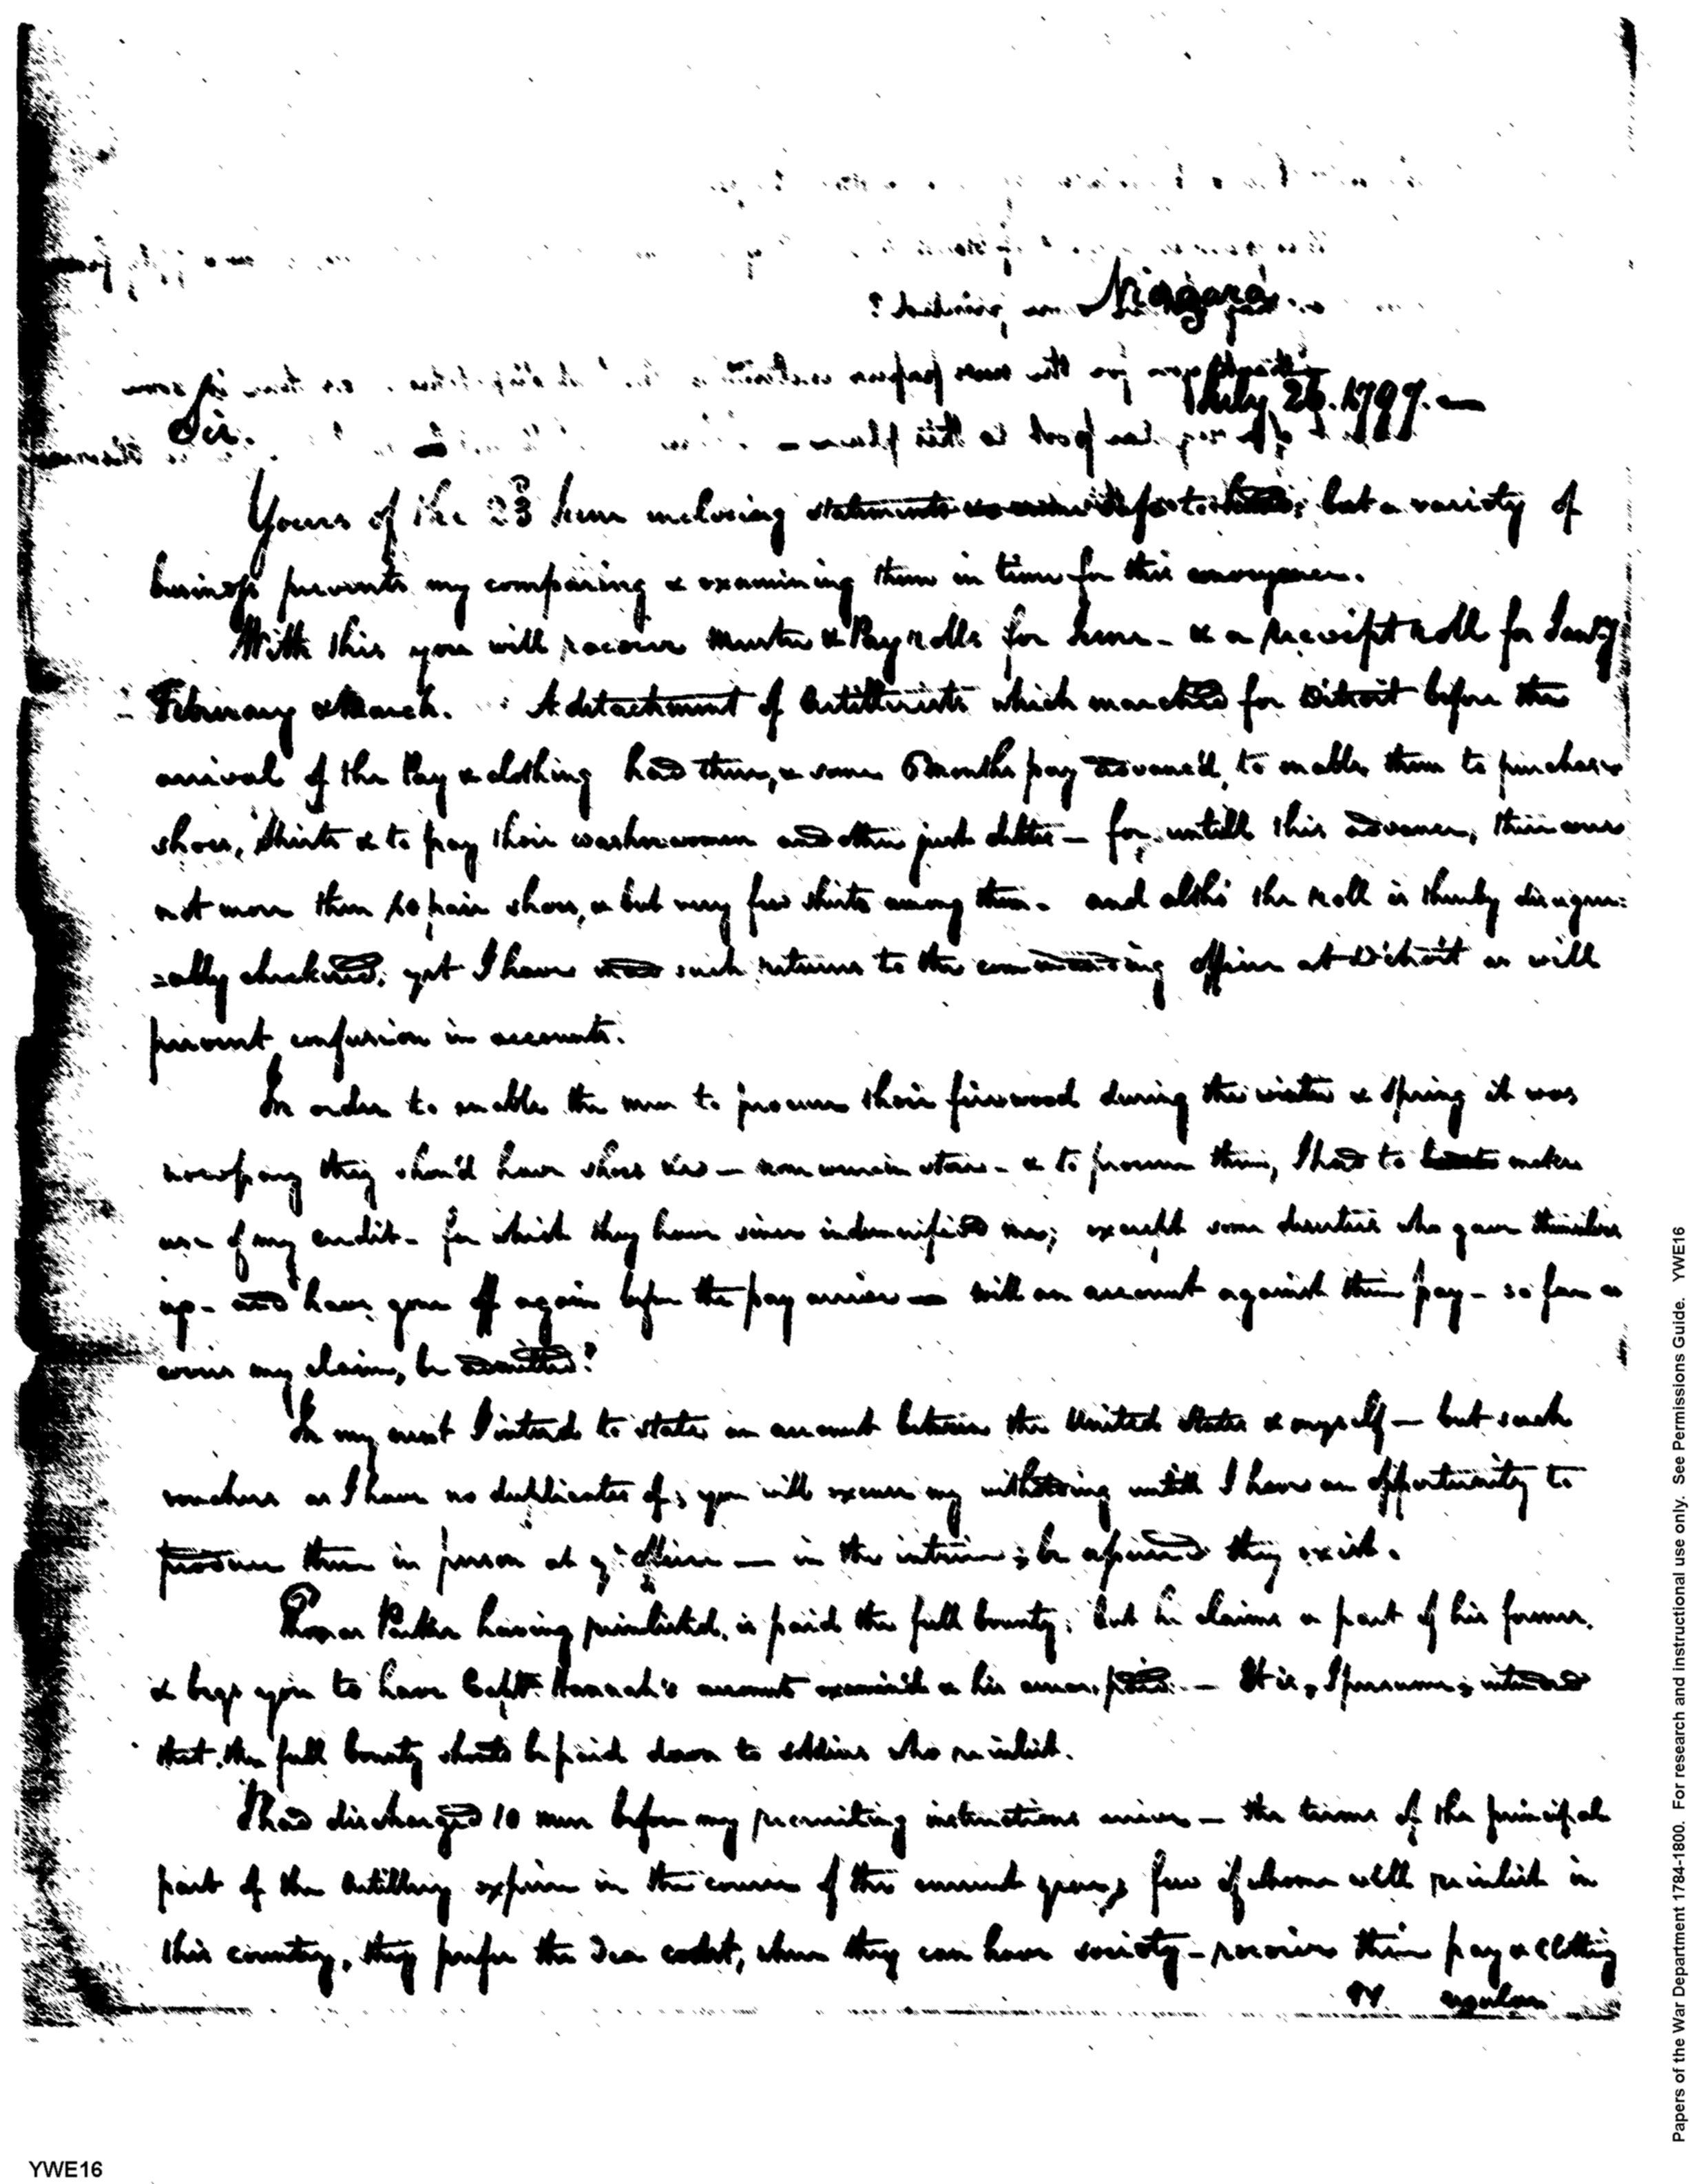 Niagara
July 26. 1797.—
Sir.
Yours of the 23d June inclosing statements came to hand; but a variety of
business prevents my comparing & examining them in time for this conveyance.
With this you will receive Muster & Pay rolls for June - & a receipt roll for Jan'y
February & March. A detachment of Artillerists which marched for Detroit before the
arrival of the Pay & clothing had three, & some 6 months pay advanc'd, to enable them to purchase
shoes, shirts & to pay their washerwomen and other just debts — for untill this advance, there were
not more then 10 pair shoes, & but very few shirts among them - and altho' the roll is thereby disagree=
=ably checkered; yet I have made such returns to the commanding officer at Detroit as will
prevent confusion in accounts.
In order to enable the men to procure their firewood during the winter & spring it was
necessary they should have shoes &c — none were in store - & to procure them, I had to make
use of my credit - for which they have since indemnified me; except some deserters who gave themselves
up - and have gone off again before the pay arrived — will an account against their pay - so far as
covers my claim, be admitted?
In my next I intend to state an account between the United States & myself — but such
vouchers as I have no duplicates of; you will excuse my witholding untill I have an opportunity to
produce them in person at yr. office — in the interim; be assured they exist.
Thomas Parker having reinlisted, is paid the full bounty; but he claims a part of his former.
& begs you to have Capt. Hannah's accounts examin'd & his arrears paid. — It is, I presume; intended
that the full bounty should be paid down to soldiers who reinlist.
I had discharged 10 men before my recruiting instructions arrived — the terms of the principal
part of the Artillery expire in the course of the current year; few of whom will reinlist in
this country, they prefer the Sea coast, where they can have society - receive their pay & clothing
regular